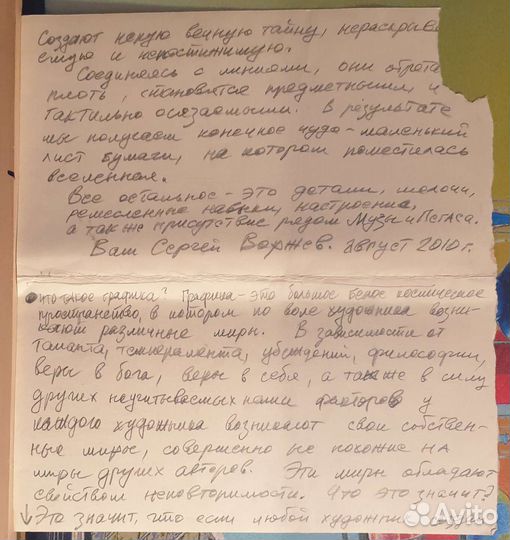 создают некую вечную тайну, нераскрыва
емую и непостижимую.
Соединяясь с линиями, они обрета
плоть, становятся предметными и
тактильно осязаемыми. В результате
мы получаем конечное чудо - маленький
лист бумаги, на котором поместилась
вселенная.
Все остальное - это детали, мелочи,
ремесленные навыки, настроение,
а также присутствие рядом Музы и Пегаса.
Ваш Сергей Воржев. Август 2010 г.
Что такое графика? Графика - это большое белое космическое
пространство, в котором по воле художника возни-
кают различные миры. В зависимости от
таланта, темперамента, убеждений, философии,
веры в бога, веры в себя, а также в силу
других неучитываемых нами факторов у
каждого художника возникают свои собствен-
ные миры, совершенно не похожие на
миры других авторов. Эти миры обладают
свойством неповторимости. Что это значит?
Это значит, что если любой художник
Avito